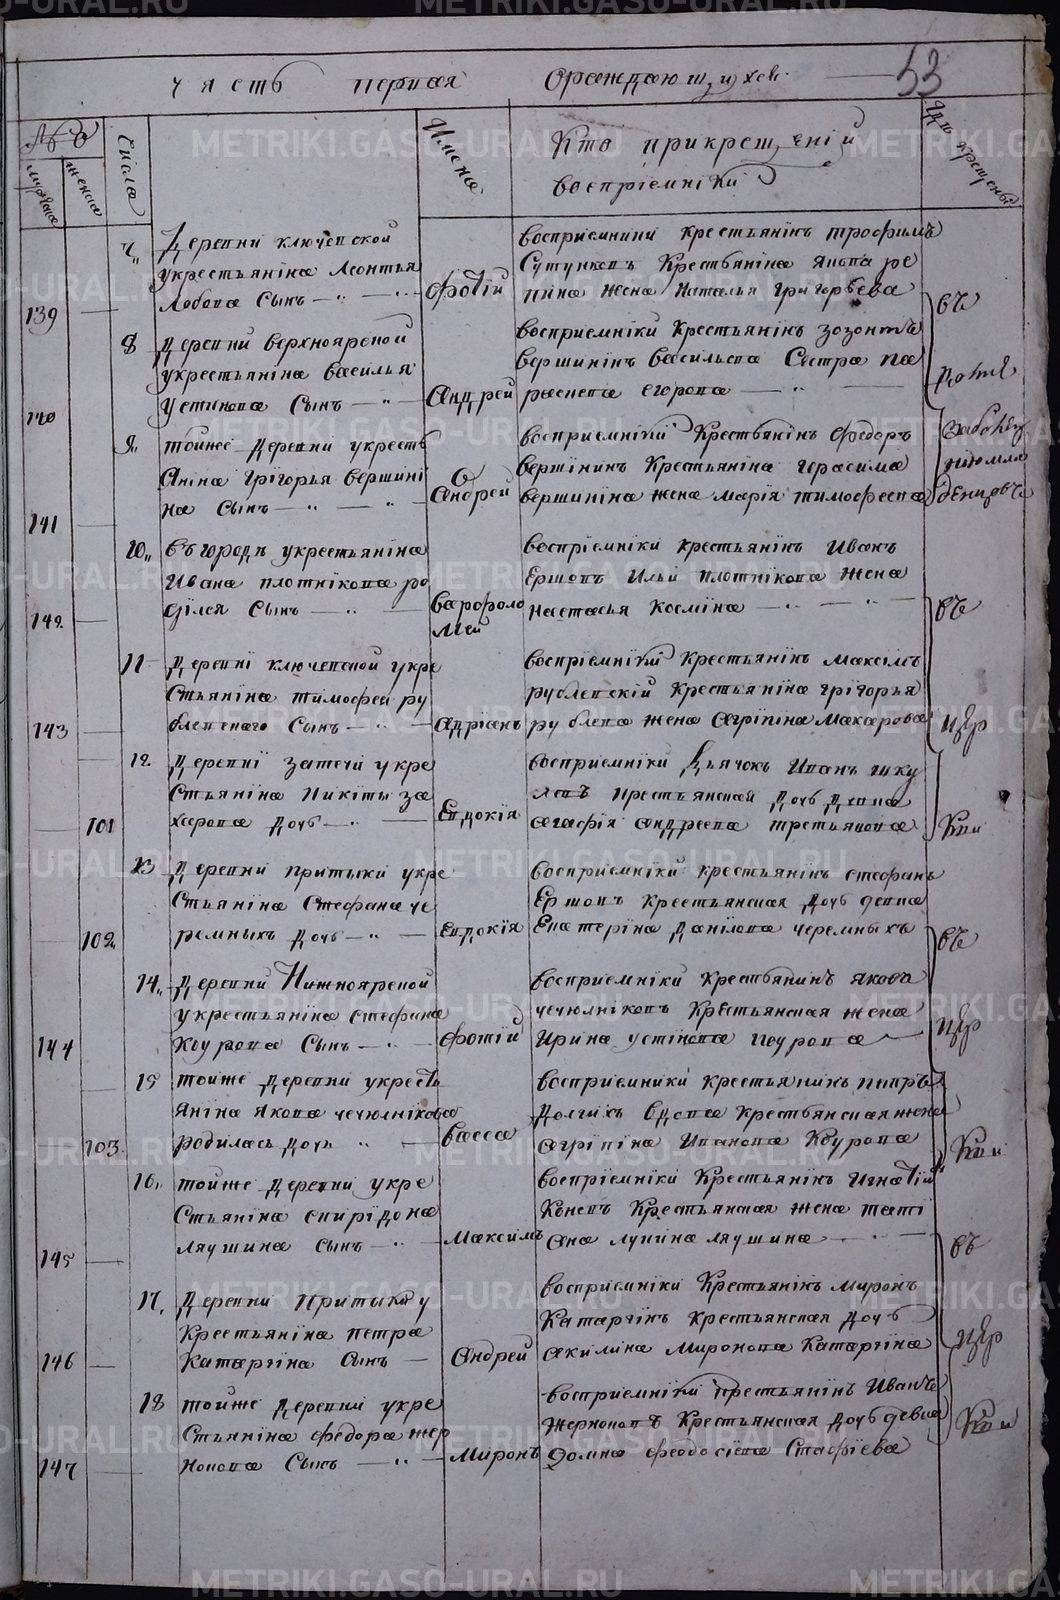 часть первая ораждающихсѧ 53
№
мужеска
женска
Числа
Имена
Кто прикрещеній
воспріемніки
крещены
139
7 Деревни ключевской
укрестьяніна Леонтья
Лобова Сынъ
Фотій
воспріемники Крестьянінъ трофимъ
Сутунковъ Крестьяніна
жена Наталья Григорьева
въ
140
8 Деревни верхнояреной
укрестьяніна василья
Устинова Сынъ
Андрей
воспріемніки Крестьянінъ зозонтъ
вершинінъ васильева Сестра па
расковя егорова
141
9 тойже Деревни укресть
яніна Грігорья вершині
на Сынъ
Андрей
воспріемнікі Крестьянінъ Федоръ
вершінинъ Крестьяніна герасима
вершиніна жена марія тимофеева
142
10 въгородъ укрестьяніна
Ивана плотнікова ро
ділся Сынъ
варфоло
мей
воспріемніки Крестьянінъ Иванъ
Ершовъ Ильи Плотнікова Жена
настасья Косміна
въ
143
11 Деревні ключевской укре
стьяніна тимофея ру
блевскаго Сынъ
Адріенъ
воспріемнікі Крестьянінъ Максімъ
рублевскій Крестьяніна грігорья
рублева жена Агріпіна Макарова
цер
101
12 Деревні затечи укре
Стьяніна Никіты за
харова Дочь
Евдокія
воспріемніки Дьячокъ Иванъ шку
левъ Крестьянская Дочь Девка
агафія андреева третьякова
102
13 Деревни притыки укре
Стьяніна Стефана че
ремныхъ Дочь
Евдокія
воспріемніки крестьянінъ стефанъ
Ершовъ Крестьянская Дочь девка
Екатеріна Данілова черемныхъ
въ
144
14 Деревни Нижнояреной
укрестьяніна стефана
Коурова Сынъ
Фотій
воспріемніки Крестьянинъ яковъ
чечюлніковъ Крестьянская жена
Ирина устінова Коурова
цер
103
15 тойже Деревни укресть
яніна Якова чечюлнікова
родилась дочь
васса
воспріемники Крестьянинъ петръ
Долгихъ вдова Крестьянская жена
агріпіна Иванова Коурова
145
16 тойже Деревни укре
Стьяніна спирідона
ляушина сынъ
Максимъ
воспріемніки Крестьянінъ Игнатій
Коневъ Крестьянская жена Таті
ана лупіна ляушина
въ
146
17 Деревни Притыки у
Крестьяніна петра
Катаргіна Сынъ
Андрей
воспріемніки Крестьянінъ миронъ
Катаргінъ Крестьянская дочь
акиліна миронова Катаргіна
цер
147
18 тойже Деревни укре
Стьяніна Федора жер
нокова Сынъ
Миронъ
воспріемнікі Крестьянінъ Иванъ
жерноковъ Крестьянская дочь девка
домна Феодосіева Стафіева
METRIKI.GASO-URAL.RU